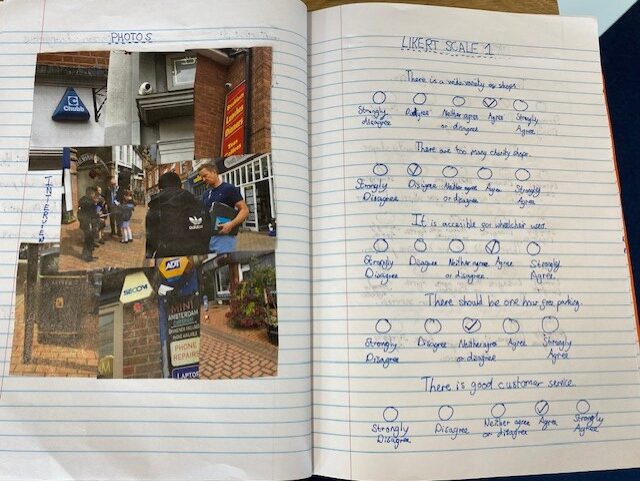 PHOTOS
Chubb
Lunches
Dinners
adidas
INTERVIEW
ADT
SECOM
MINI
AMSTERDAM
PHONE
REPAIRS
LAPTO
LIKERT SCALE 1
There is a wide variety of shops.
Strongly Disagree Neither agree Agree Strongly
disagree or disagree Agree
There are too many charity shops.
Strongly Disagree Neither agree Agree Strongly
Disagree or disagree Agree
It is accesible for wheelchair users.
Strongly Disagree Neither agree Agree Strongly
Disagree or disagree Agree.
There should be one hour free parking.
Strongly Disagree Neither agree Agree Strongly
Disagree or disagree Agree
There is good customer service.
Strongly Disagree Neither agree Agree Strongly
Disagree or disagree Agree